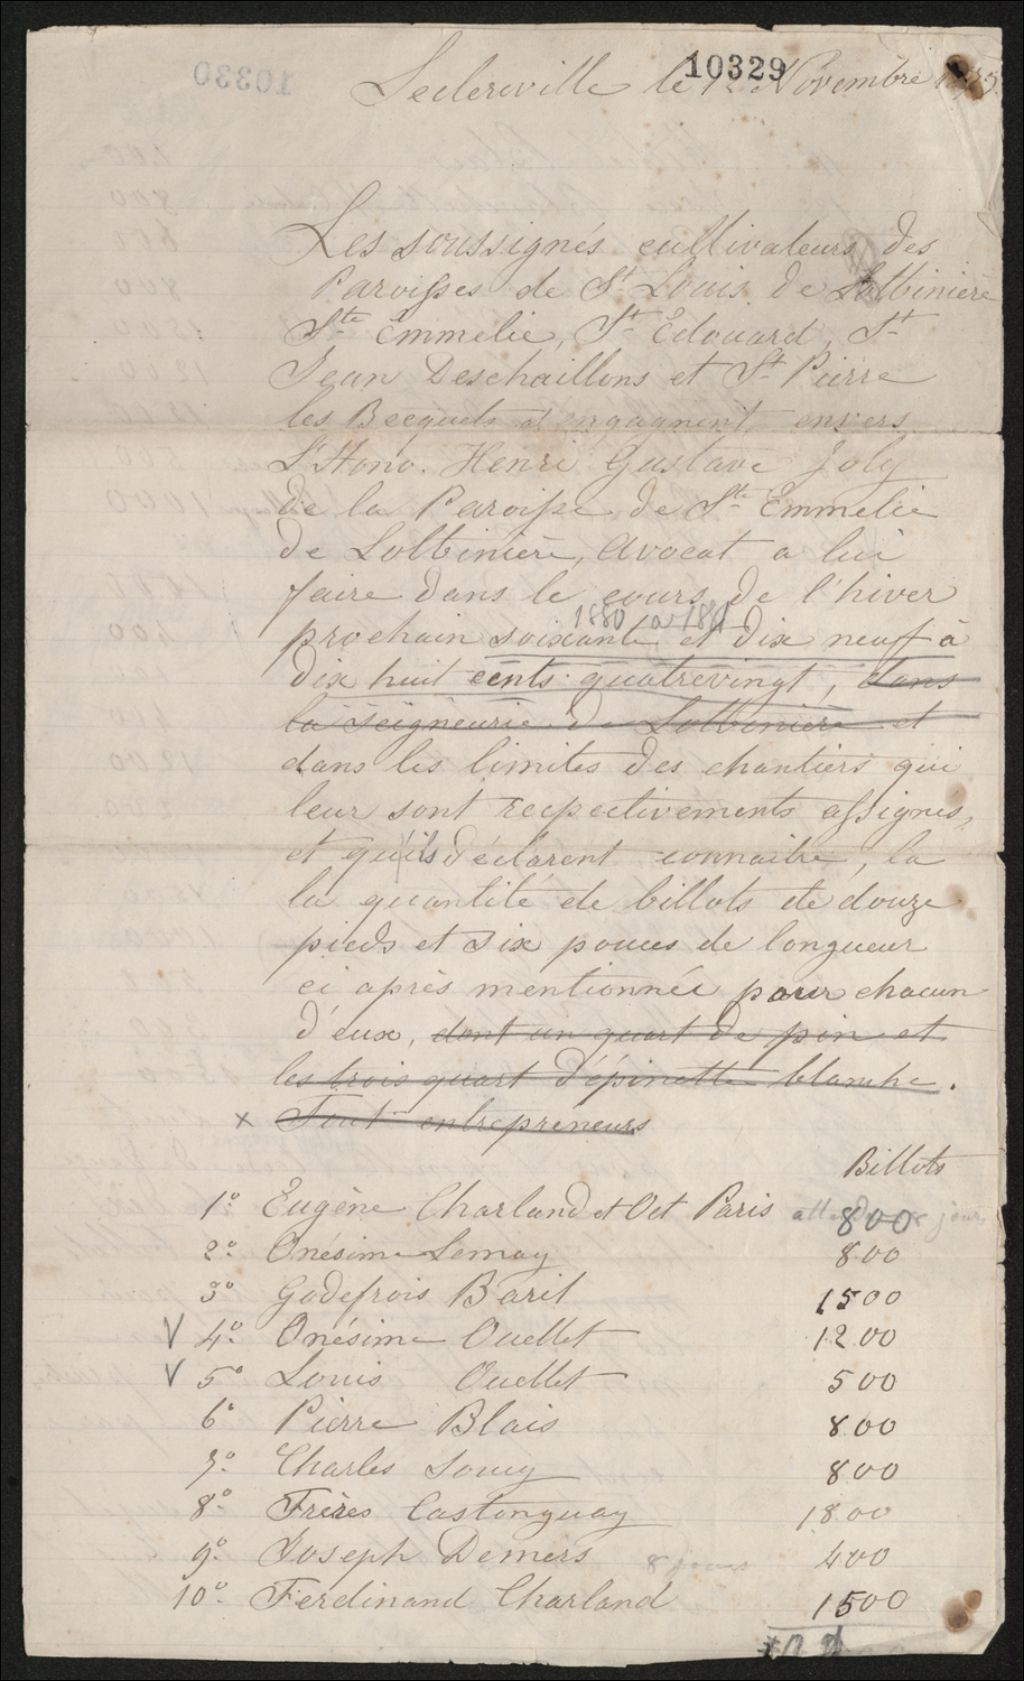 10329
10330
Leclercville le 12 Novembre
Les soussignés cultivateurs des
Paroisses de St Louis de Lotbinière
Ste Emmelie, St Edouard, St
Jean Deschaillons et St Pierre
les Becquets s'engagent envers
L'Hono. Henri Gustave Joly
de la Paroisse de Ste Emmelie
de Lotbinière, Avocat a lui
faire dans le cours de l'hiver
1880 a 1881
prochain soixante et dix neuf à
dix huit cents quatrevingt, dans
la seigneurie de Lotbinière et
dans les limites des chantiers qui
leur sont recpectivements assignés,
et qu'ils déclarent connaitre, la
la quantité de billots de douze
pieds et six pouces de longueur
ci après mentionnée pour chacun
d'eux, dont un quart de pin et
les trois quart d'épinette blanche.
x Tout entrepreneurs
Billots
1o Eugène Charland et Oct Paris 800 jours
2o Onésime Lemay 800
3o Godefrois Baril 1500
V 4o Onésime Ouellet 1200
V 5o Louis Ouellet 500
6o Pierre Blais 800
7o Charles Soucy 800
8o Frères Castonguay 1800
9o Joseph Demers 8 jours 400
10o Ferdinand Charland 1500